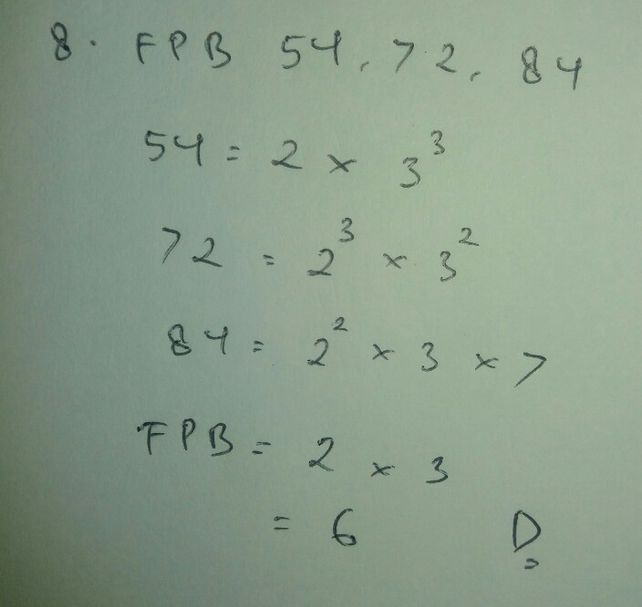 8. FPB 54, 72, 84
54 = 2 × 3³
72 = 2³ × 3²
84 = 2² × 3 × 7
FPB = 2 × 3
= 6 D